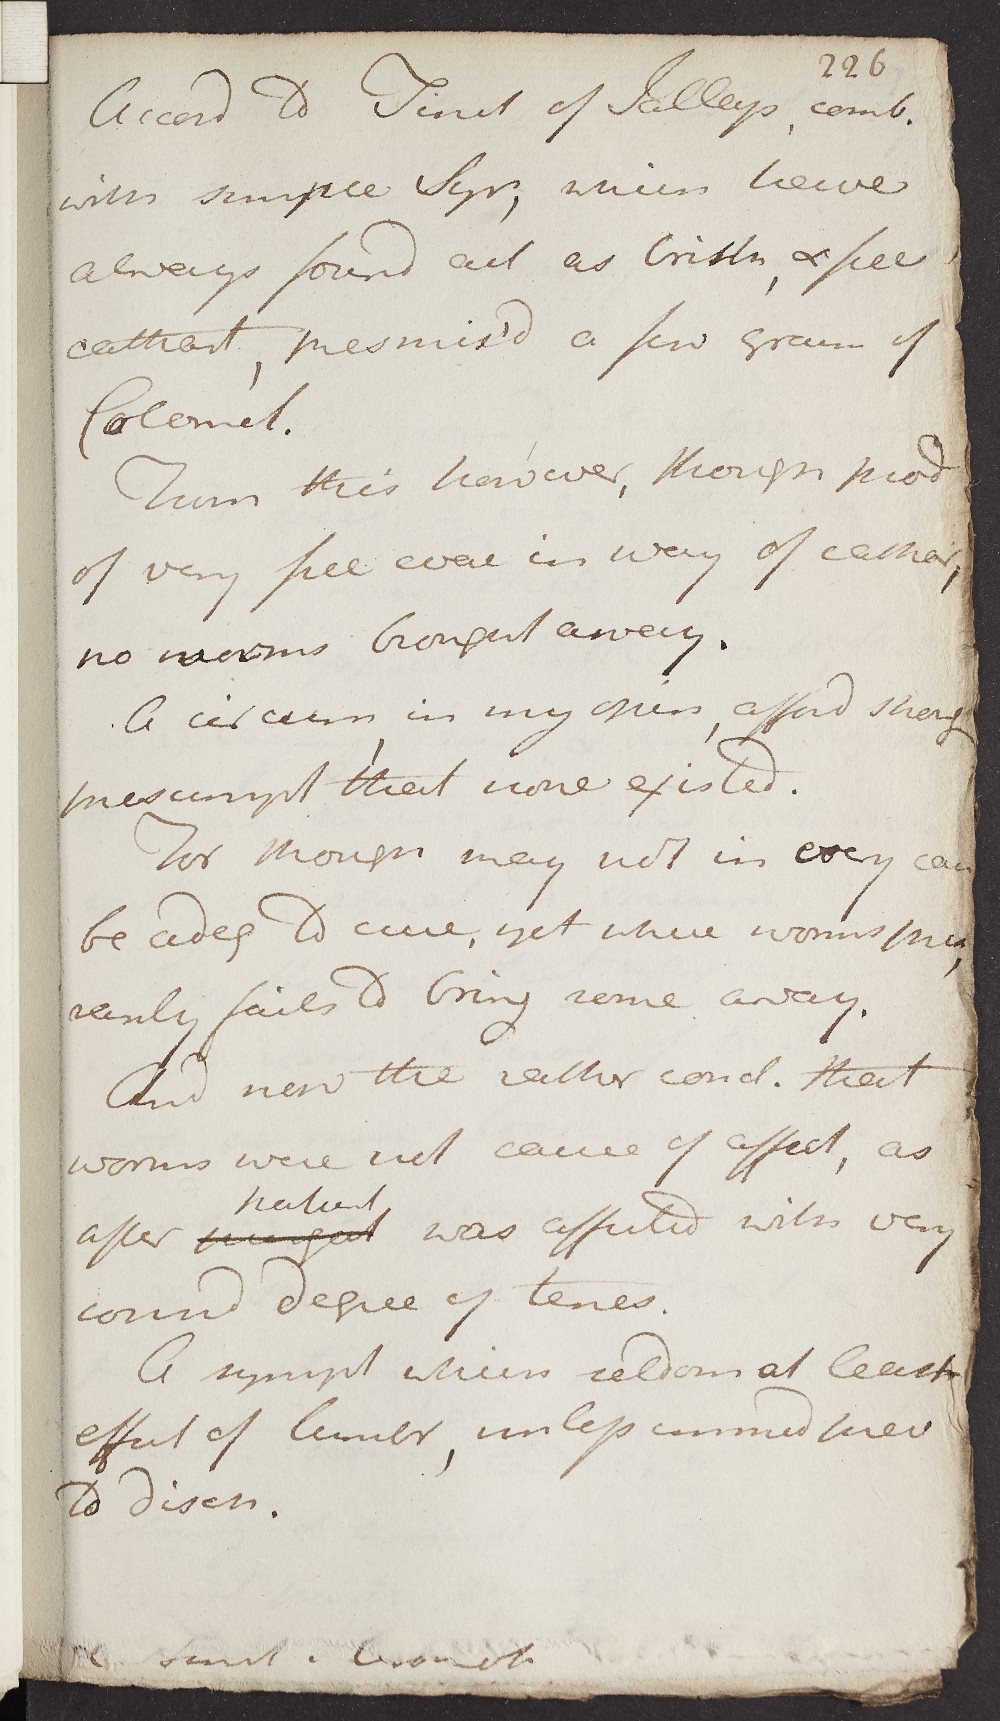 226
Accord to Tinct of Jallap, comb.
with simple Syr, which have
always found act as brisk, & free
cathart, premis'd a few grain of
Calomel.
From this however, though prod
of very free evac in way of cathar,
no worms brought away.
A circum, in my opin, afford strong
presumpt that none existed.
For though may not in every case
be adeq to cure, yet where worms pres,
rarely fails to bring some away.
And now the rather concl. that
worms were not cause of affect, as
patient
after purgat was affected with very
consid degree of tenes.
A sympt which seldom at least
effect of lumbr, unless immed prev
to disch.